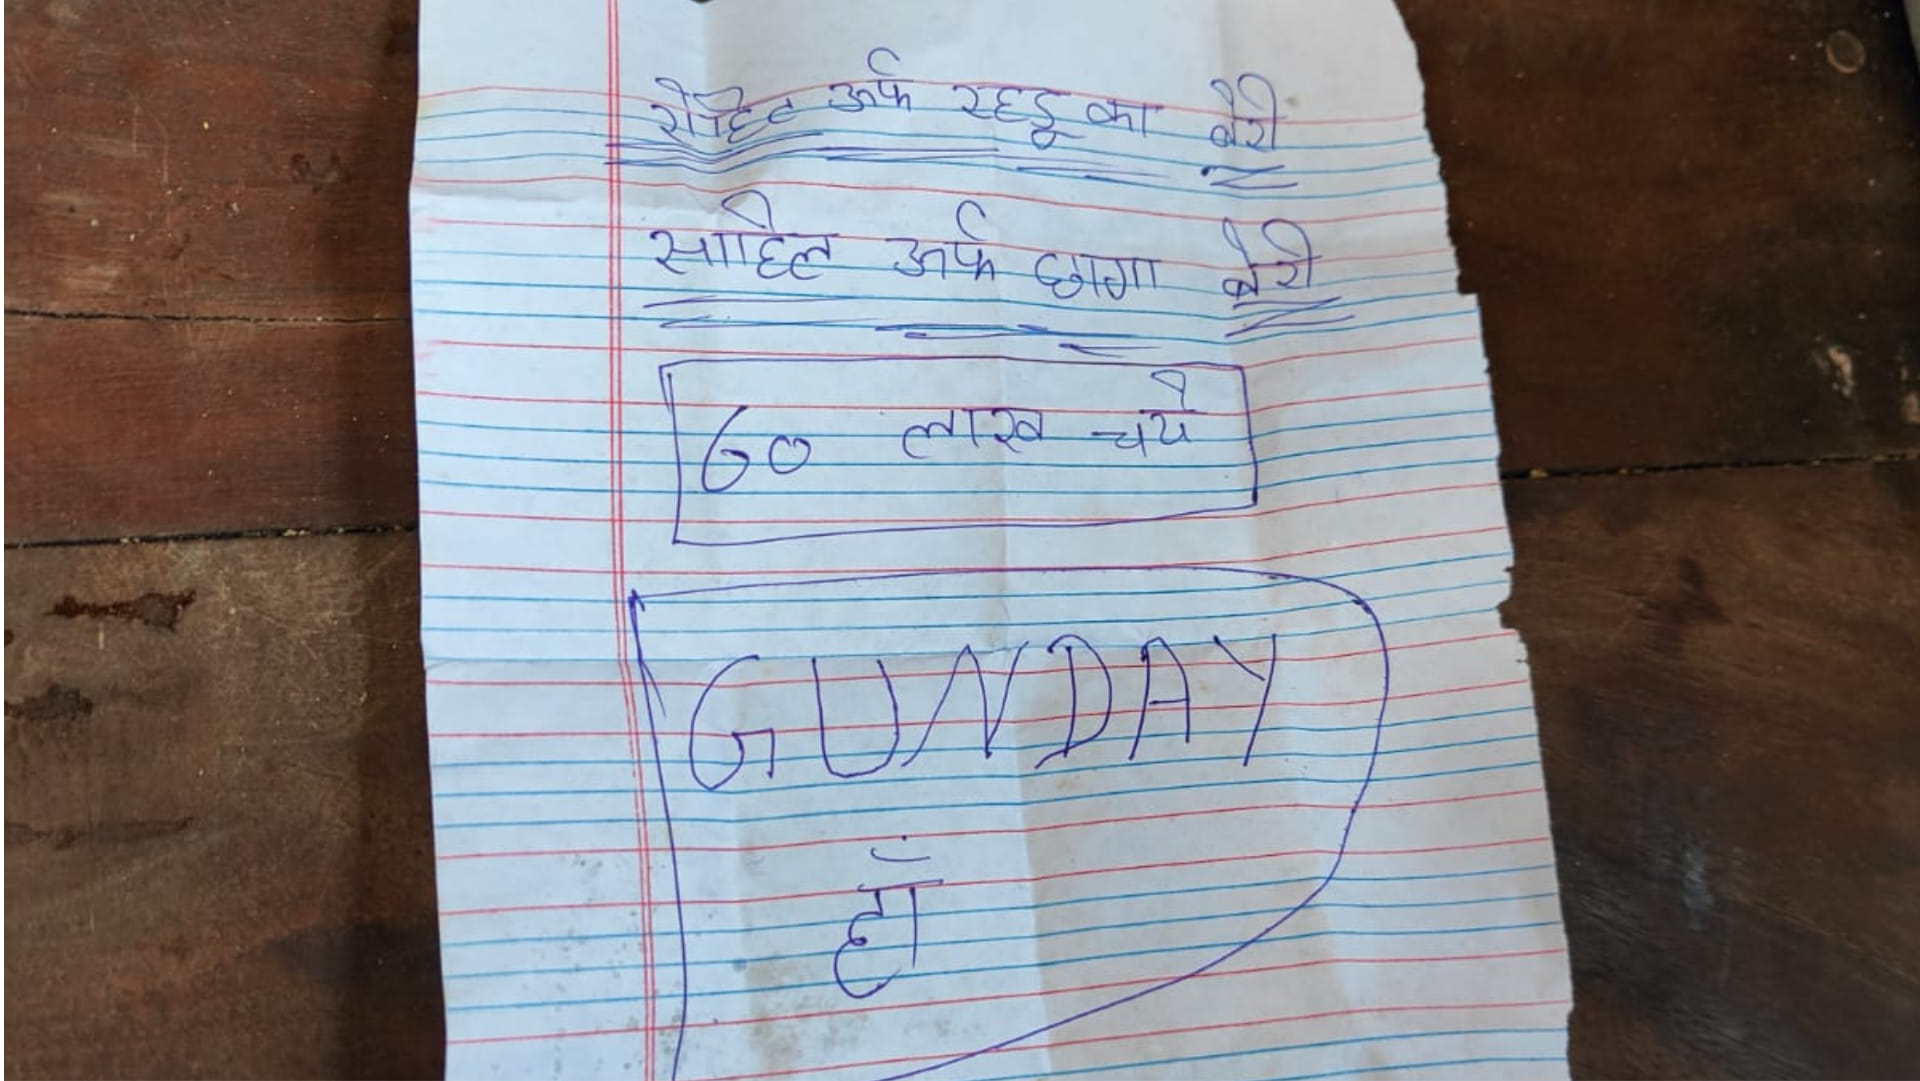 रोहित उर्फ रहडू का बेरी
साहिल उर्फ छागा बेरी
60 लाख
GUNDAY
हाँ